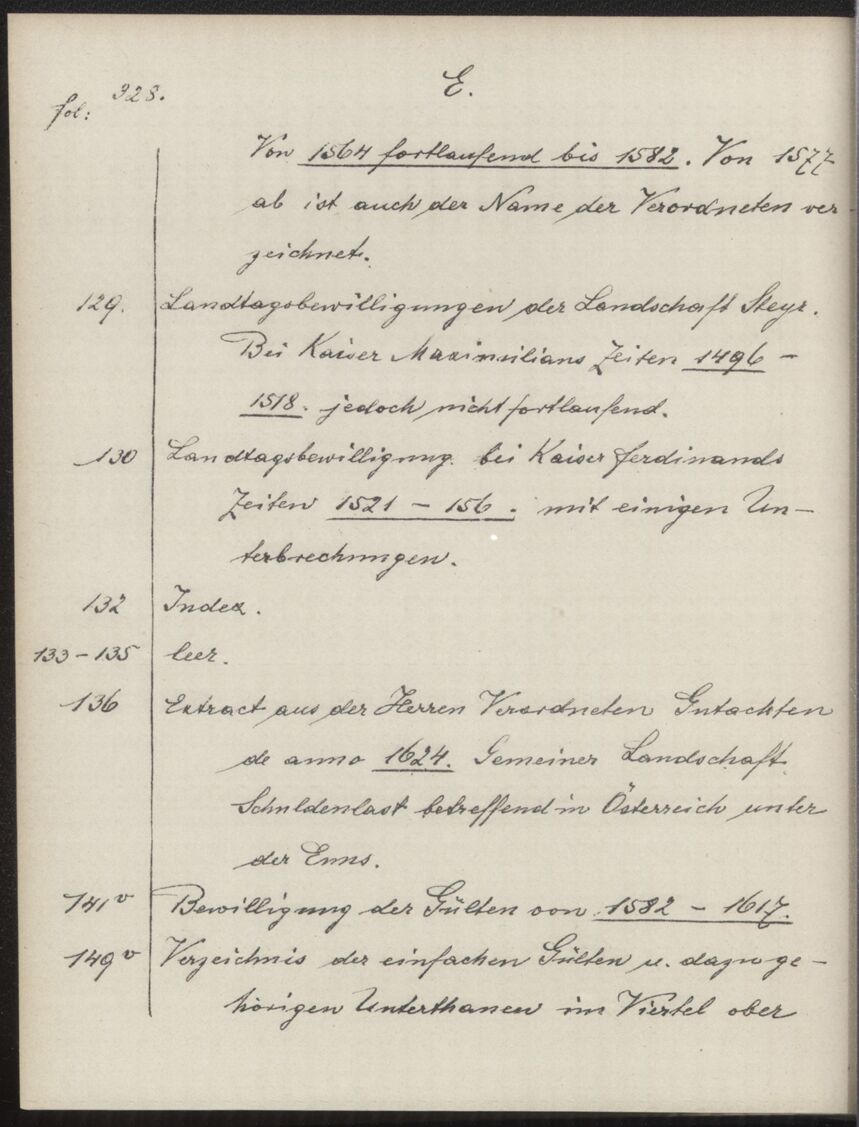 E.
fol: 328.
Von 1564 fortlaufend bis 1582. Von 1577
ab ist auch der Name der Verordneten ver
zeichnet.
129. Landtagsbewilligungen der Landschaft Steyr.
Bei Kaiser Maximilians Zeiten 1496 -
1518. jedoch nicht fortlaufend.
130 Landtagsbewilligung. bei Kaiser Ferdinands
Zeiten 1521 - 156 . mit einigen Un-
terbrechungen.
132 Index.
133-135 leer.
136 Extract aus der Herren Verordneten Gutachten
de anno 1624. Gemeiner Landschaft
Schuldenlast betreffend in Österreich unter
der Enns.
141v Bewilligung der Gülten von 1582 - 1617.
149v Verzeichnis der einfachen Gülten u. dazu ge-
hörigen Unterthanen im Viertel ober